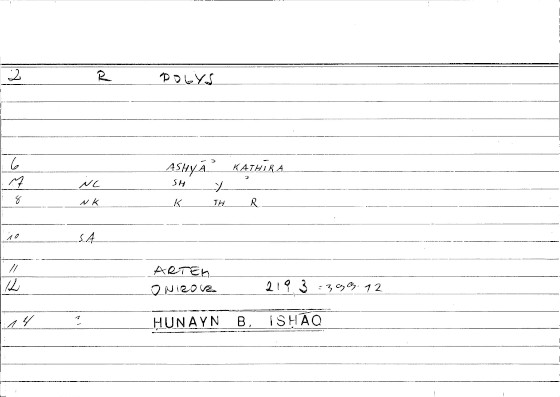 2 R POLYS
6 ASHYĀʾ KATHĪRA
7 NC SH Y ʾ
8 NK K TH R
10 SA
11 ARTEM
12 ONIROCR 219,3 = 399,12
14 : ḤUNAYN B. ISḤĀQ